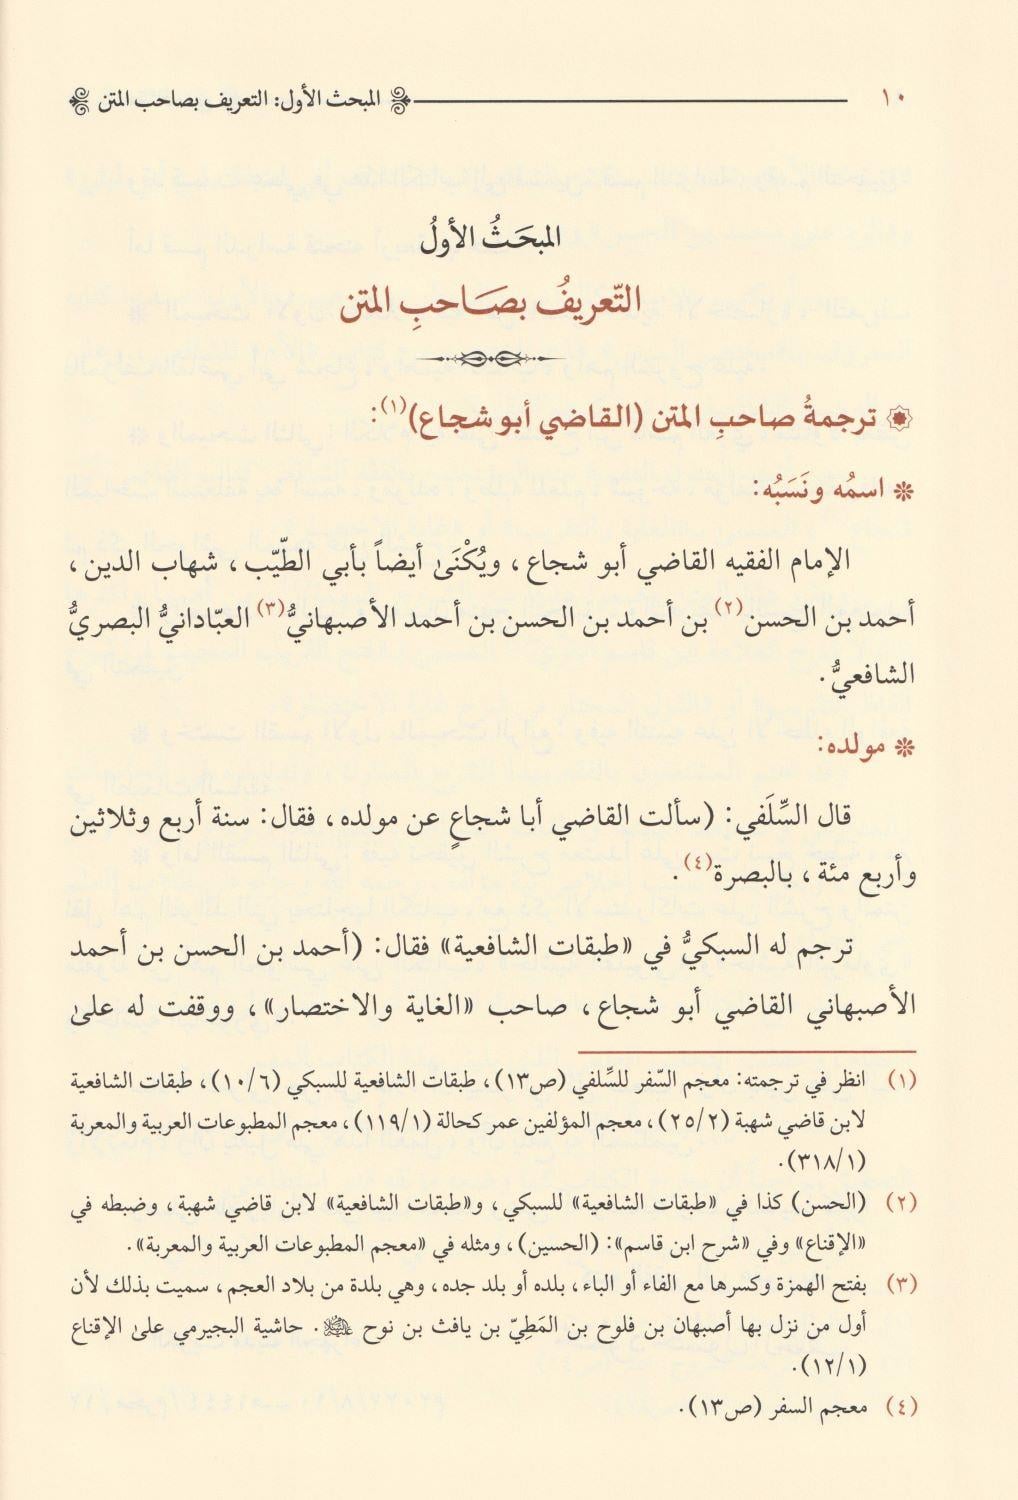 ١٠ المبحث الأول: التعريف بصاحب المتن
المبحَثُ الأولُ
التّعريفُ بصَاحبِ المتن
ترجمةُ صاحبِ المتن (القاضي أبو شجاع)(١):
❊ اسمُه ونَسَبُه:
الإمام الفقيه القاضي أبو شجاع، ويُكْنَىٰ أيضاً بأبي الطّيّب، شهاب الدين،
أحمد بن الحسن(٢) بن أحمد بن الحسن بن أحمد الأصبهانيُّ(٣) العبّادانيُّ البصريُّ
الشافعيُّ.
❊ مولده:
قال السِّلَفي: (سألت القاضي أبا شجاعٍ عن مولده، فقال: سنة أربع وثلاثين
وأربع مئة، بالبصرة(٤).
ترجم له السبكيُّ في «طبقات الشافعية» فقال: (أحمد بن الحسن بن أحمد
الأصبهاني القاضي أبو شجاع، صاحب «الغاية والاختصار»، ووقفت له علىٰ
(١) انظر في ترجمته: معجم السّفر للسِّلفي (ص١٣)، طبقات الشافعية للسبكي (١٠/٦)، طبقات الشافعية
لابن قاضي شهبة (٢٥/٢)، معجم المؤلفين عمر كحالة (١١٩/١)، معجم المطبوعات العربية والمعربة
(٣١٨/١).
(٢) (الحسن) كذا في «طبقات الشافعية» للسبكي، و«طبقات الشافعية» لابن قاضي شهبة، وضبطه في
«الإقناع» وفي «شرح ابن قاسم»: (الحسين)، ومثله في «معجم المطبوعات العربية والمعربة».
(٣) بفتح الهمزة وكسرها مع الفاء أو الباء، بلده أو بلد جده، وهي بلدة من بلاد العجم، سميت بذلك لأن
أول من نزل بها أصبهان بن فلوح بن المَطِيّ بن يافث بن نوح ﵇. حاشية البجيرمي علىٰ الإقناع
(١٢/١).
(٤) معجم السفر (ص١٣).